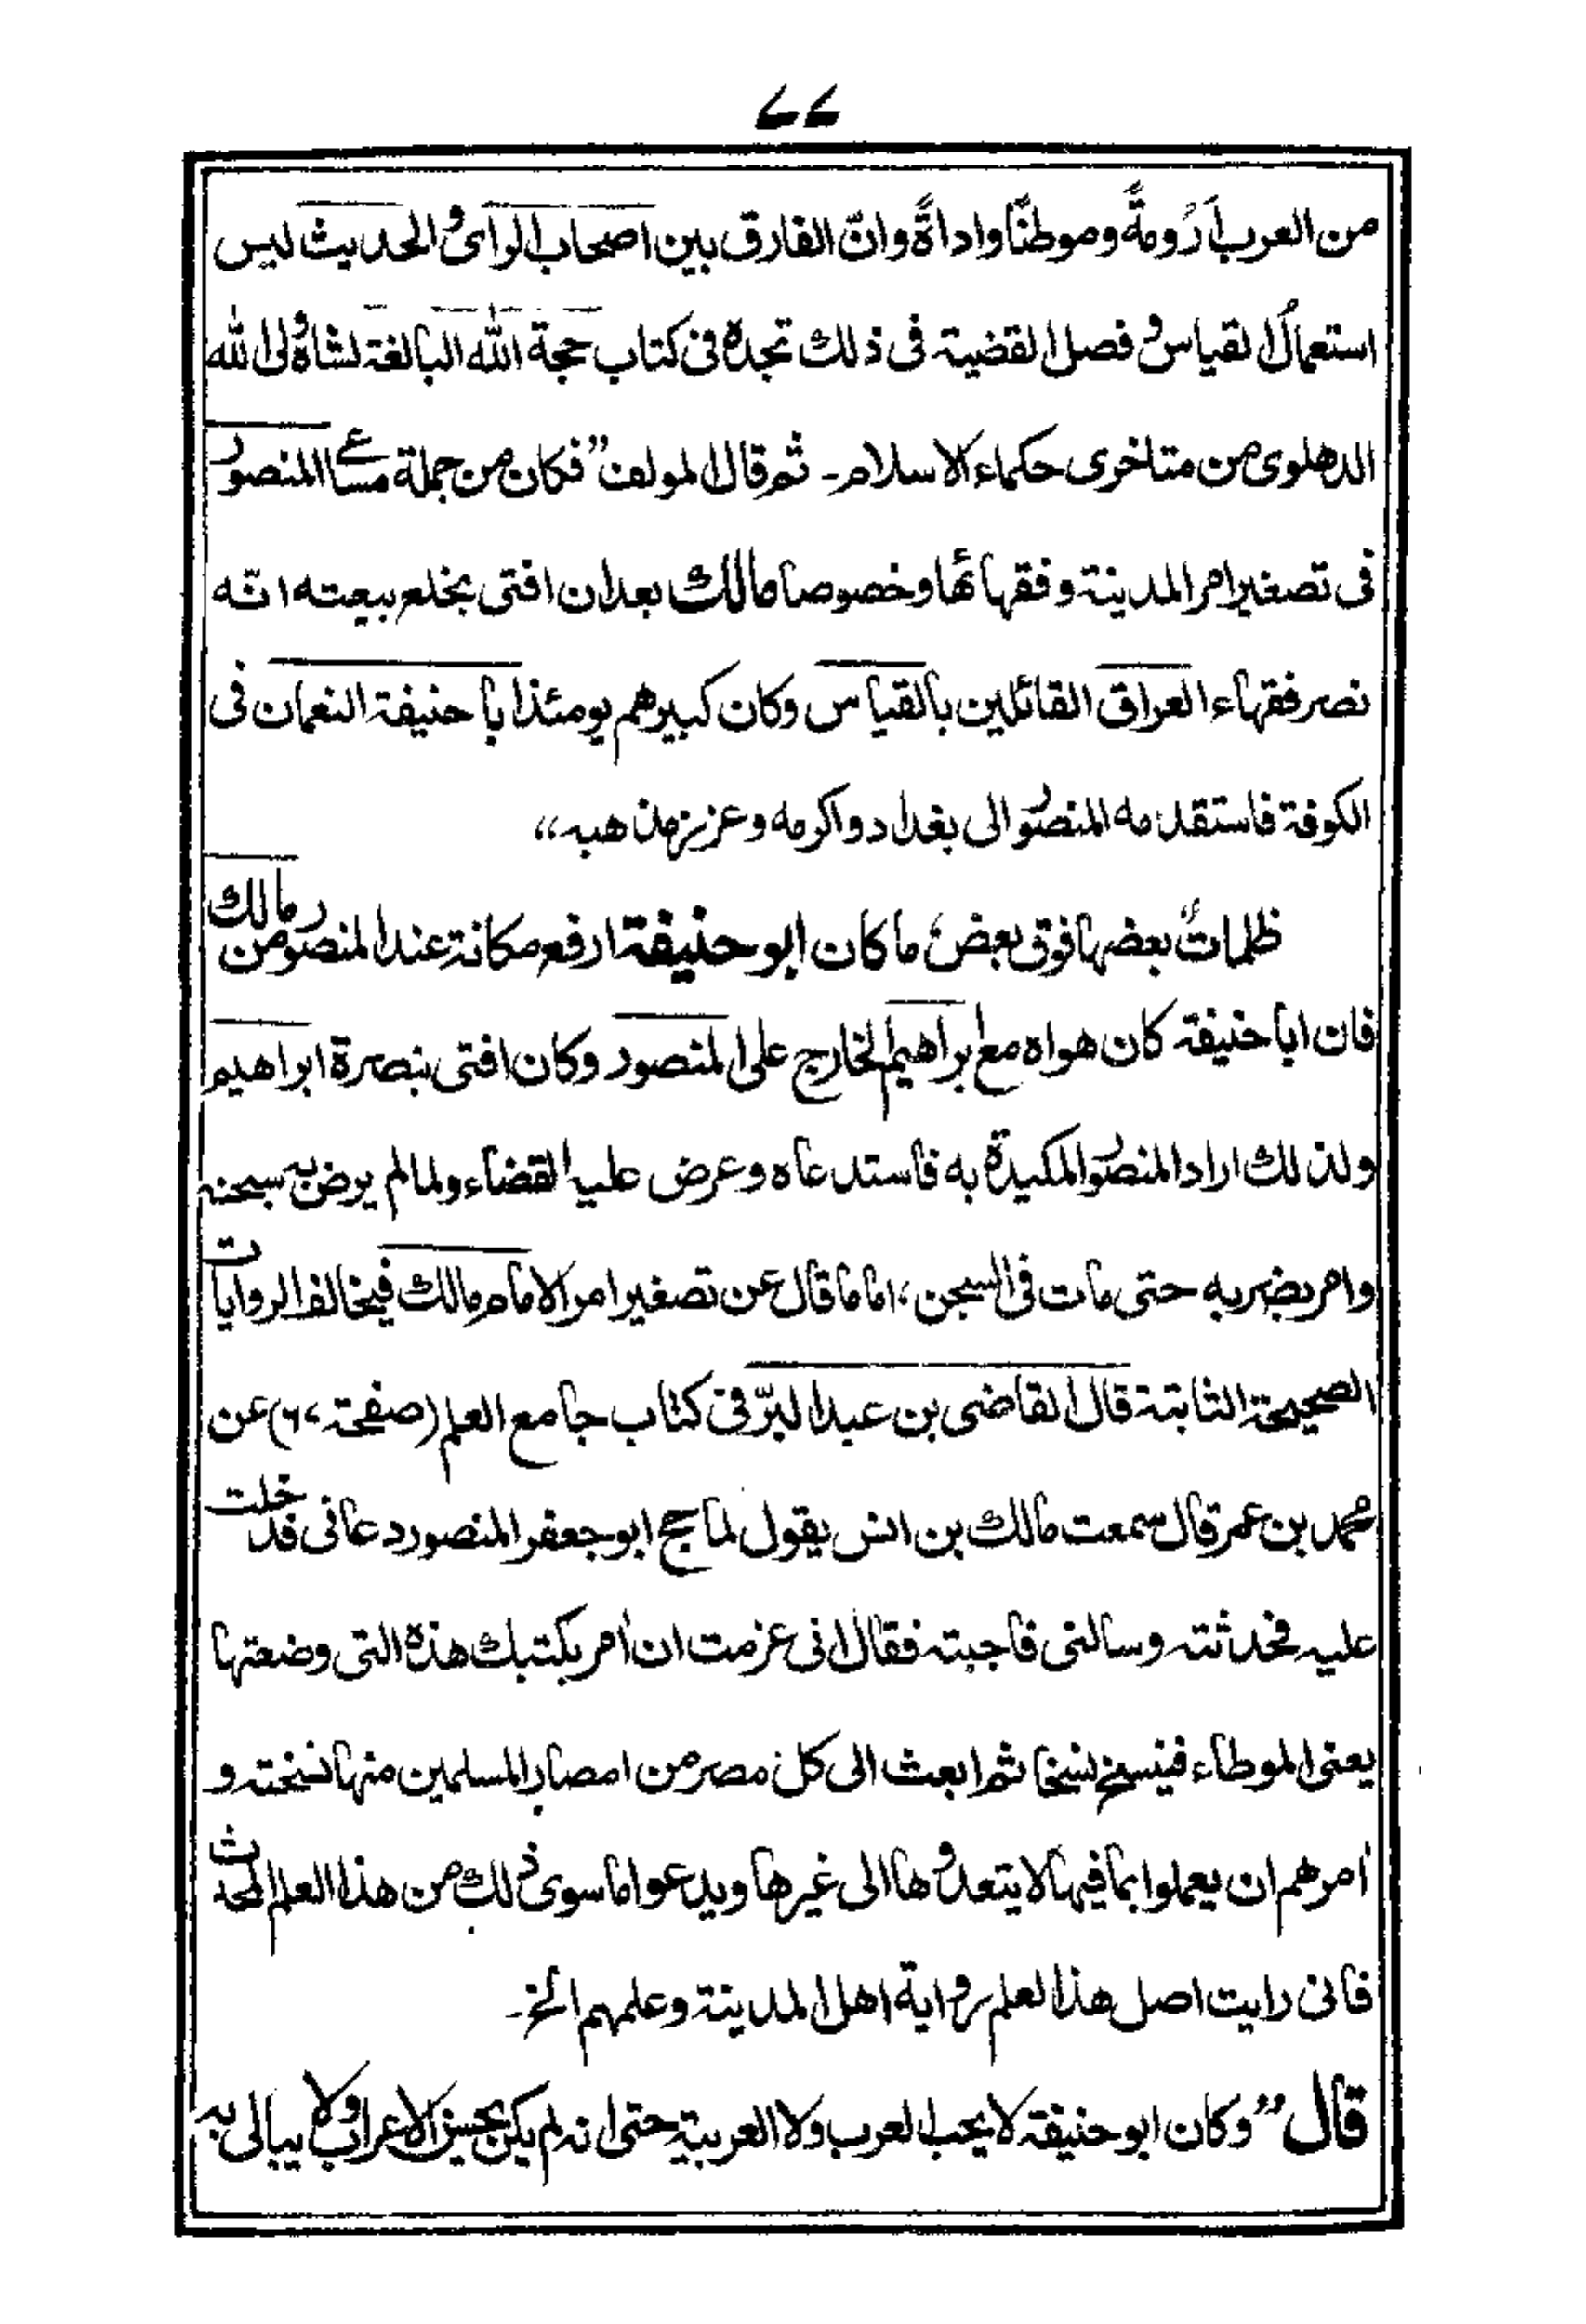 ٧٧
من العرب اَرُومةً وموطنًا واداةً وانّ الفارق بين اصحاب الرأى والحديث ليس
استعمال القياس وفصل القضية فى ذلك تجده فى كتاب حجة الله البالغة لشاه ولى الله
الدهلوى من متاخرى حكماء الاسلام۔ ثم قال المولف ”فكان من جملة مساعى المنصور
فى تصغير امر المدينة وفقهائها وخصوصا مالك بعد ان افتى بخلع بيعته انّه
نصر فقهاء العراق القائلين بالقياس وكان كبيرهم يومئذ ابا حنيفة النعمان فى
الكوفة فاستقدمه المنصور الى بغداد واكرمه وعزز مذهبه“
ظلماتٌ بعضها فوق بعض، ما كان ابو حنيفة ارفع مكانة عند المنصور من مالك
فان ابا حنيفة كان هواه مع ابراهيم الخارج على المنصور وكان افتى بنصرة ابراهيم
ولذلك اراد المنصور المكيدة به فاستدعاه وعرض عليه القضاء ولما لم يرض به سجنه
وامر بضربه حتى مات فى السجن، اما ما قال عن تصغير امر الامام مالك فيخالف الروايات
الصحيحة الثابتة قال القاضى بن عبد البرّ فى كتاب جامع العلم (صفحة ٦٠) عن
محمد بن عمر قال سمعت مالك بن انس يقول لما حج ابو جعفر المنصور دعانى فدخلت
عليه فحدثته وسالنى فاجبته فقال انى عزمت ان اٰمر بكتبك هذه التى وضعتها
يعنى الموطاء فينسخ نسخا ثم ابعث الى كل مصر من امصار المسلمين منها نسخته و
اٰمرهم ان يعملوا بما فيها لا يتعدوها الى غيرها ويدعوا ما سوى ذلك من هذا العلم المحدث
فانى رايت اصل هذا لعلم رواية اهل المدينة وعلمهم الخ۔
قال ”وكان ابو حنيفة لا يحب العرب ولا العربية حتى انه لم يكن يحسن الاعراب ولا يبالى به